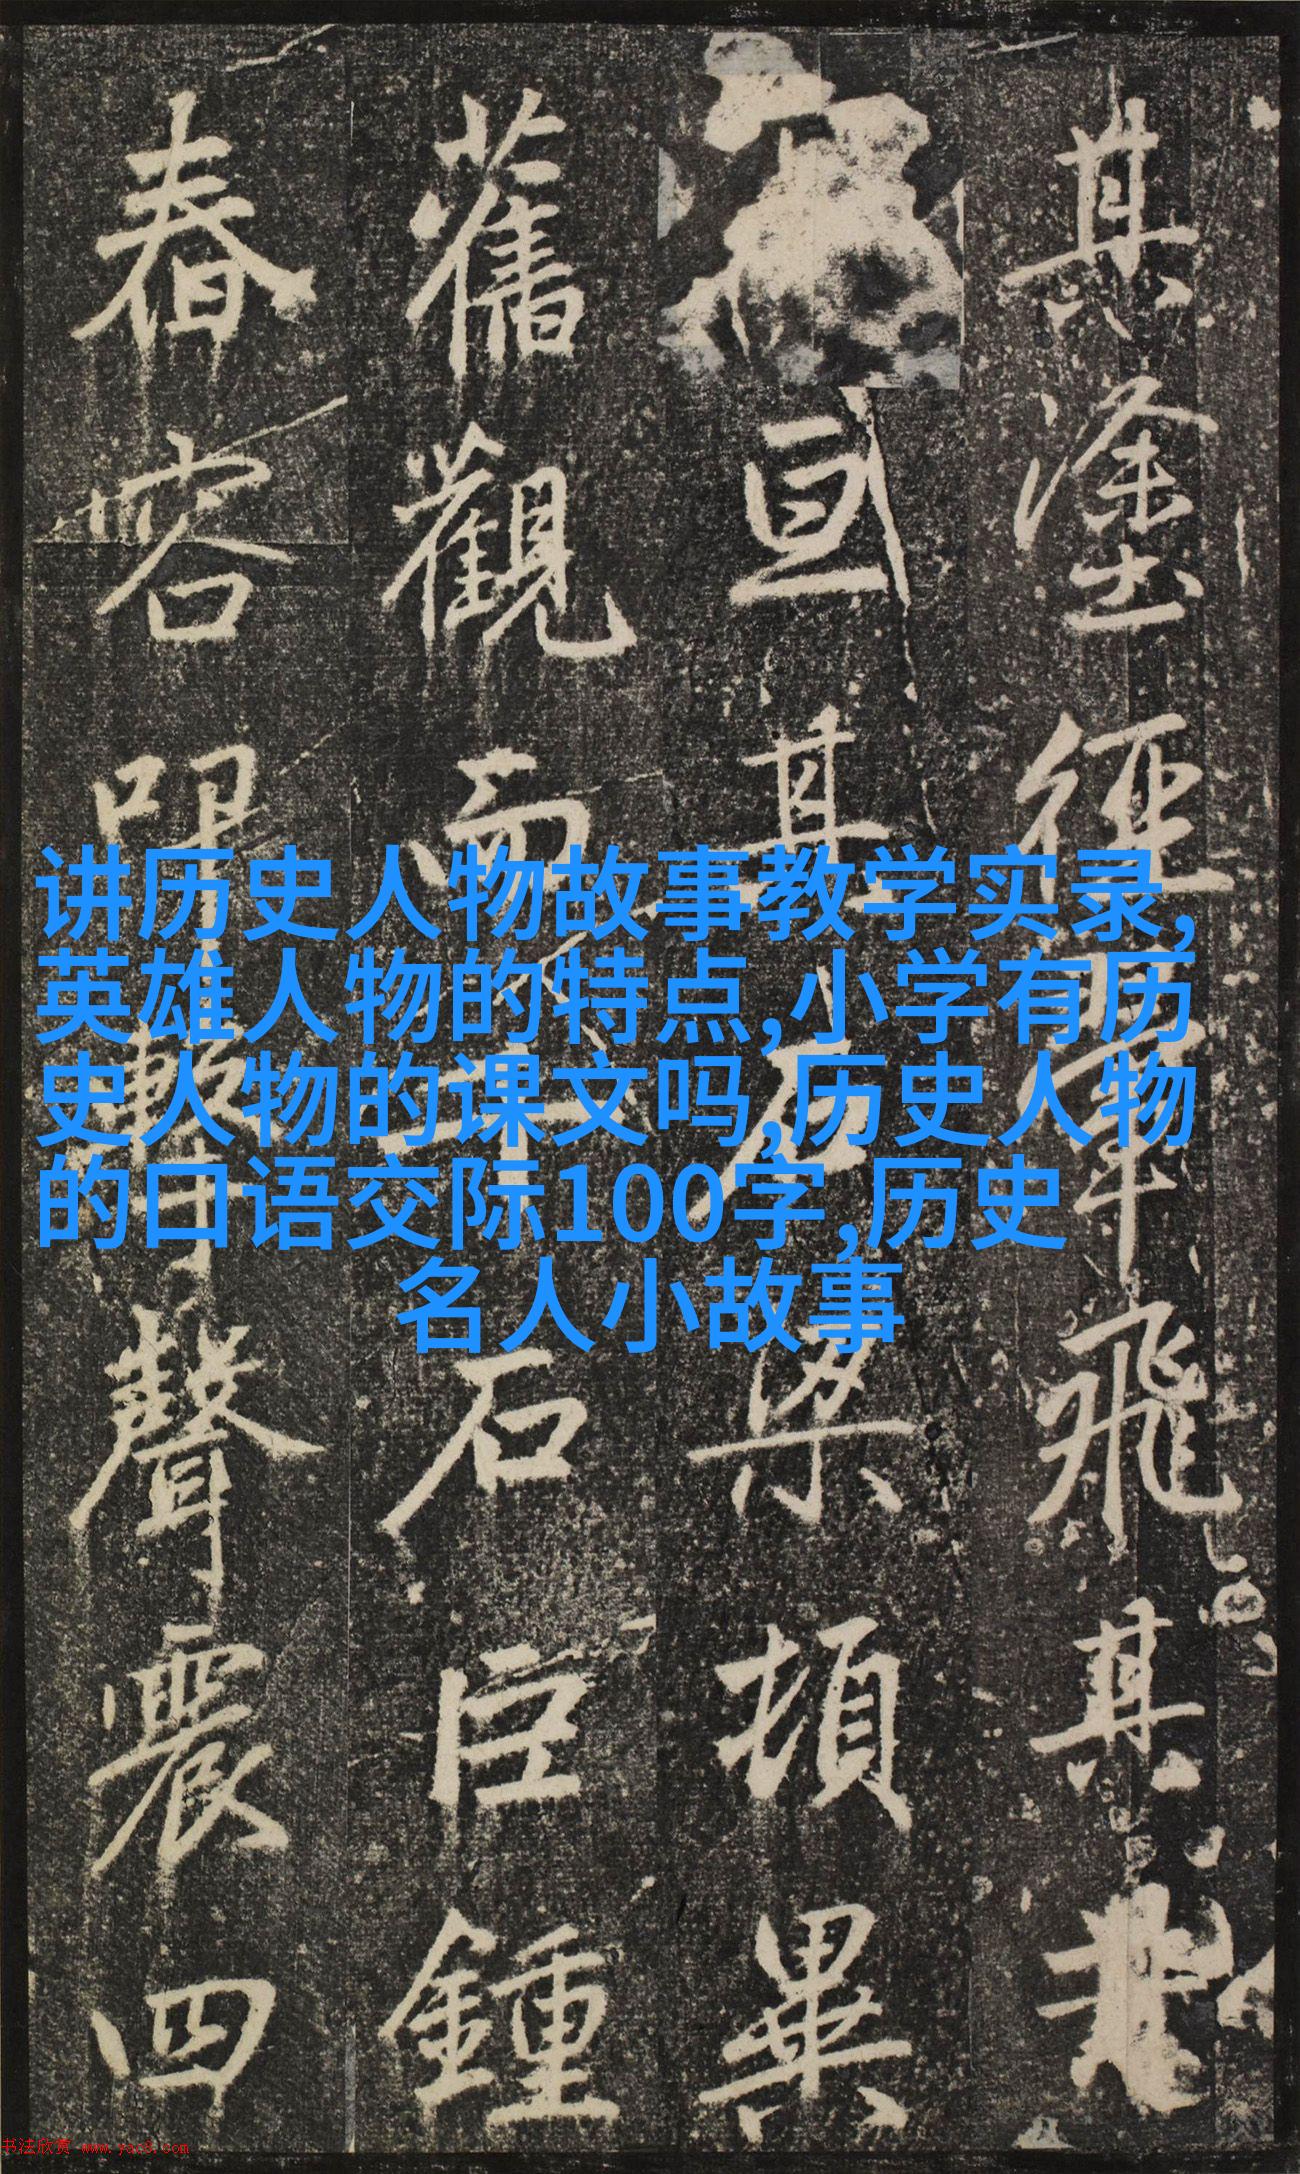 其塗徑翬飛其
亘其石梁頓異
舊觀而石巨鍾
春容叩擊聲震四
讲历史人物故事教学实录,
英雄人物的特点,小学有历
史人物的课文吗,历史人物
的口语交际100字,历史
名人小故事
书法欣赏 www.yac8.com